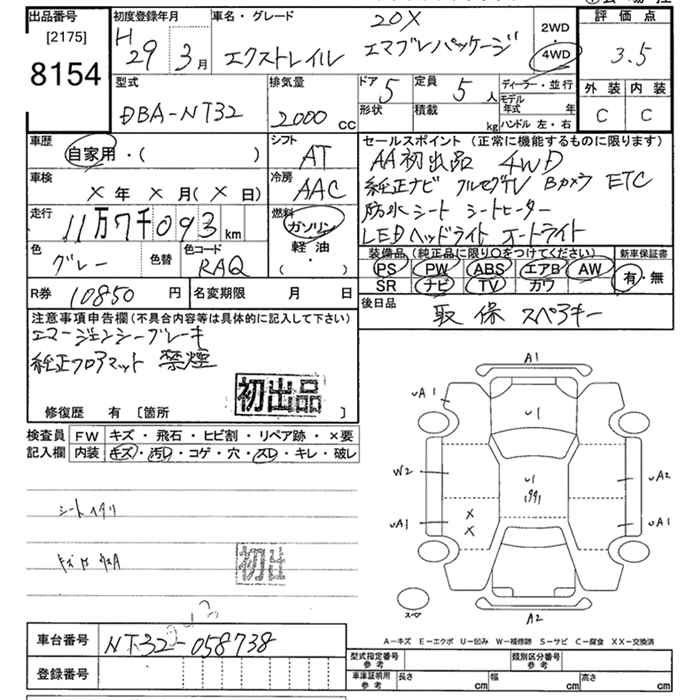 出品番号
[2175]
8154
初度登録年月
H 29 3 月
車名・グレード
20X
エクストレイル エマブレパッケージ
2WD
・
4WD
評価点
3.5
外装 内装
C C
型式
DBA-NT32
排気量
2000 cc
ドア 5
定員 5 人
形状
積載 kg
ディーラー・並行
モデル年式 年
ハンドル 左・右
車歴
自家用・( )
シフト
AT
車検
X 年 X 月( X 日)
冷房
AAC
走行
11万7千093 km
燃料
ガソリン
軽油
・( )
色
グレー
色替
色コード
RAQ
セールスポイント (正常に機能するものに限ります)
AA初出品 4WD
純正ナビ フルセグTV Bカメラ ETC
防水シート シートヒーター
LEDヘッドライト オートライト
装備品(純正品に限り○をつけてください)
PS PW ABS エアB AW
SR ナビ TV カワ
新車保証書
有・無
R券 10850 円
名変期限 月 日
後日品
取 保 スペアキー
注意事項申告欄(不具合内容等は具体的に記入して下さい)
エマージェンシーブレーキ
純正フロアマット 禁煙
初出品
修復歴 有 [箇所 ]
検査員記入欄
FW キズ・飛石・ヒビ割・リペア跡・×要
内装 キズ・汚レ・コゲ・穴・スレ・キレ・破レ
シートヘタリ
初出
A1
uA1
u1
W2
u1
uA2
uA1
uA1
X
X
A2
A―キズ E―エクボ U―凹み W―補修跡 S―サビ C―腐食 XX―交換済
車台番号
NT32-058738
登録番号
型式指定番号
参考
類別区分番号
参考
車庫証明用
参考
長さ cm
幅 cm
高さ cm